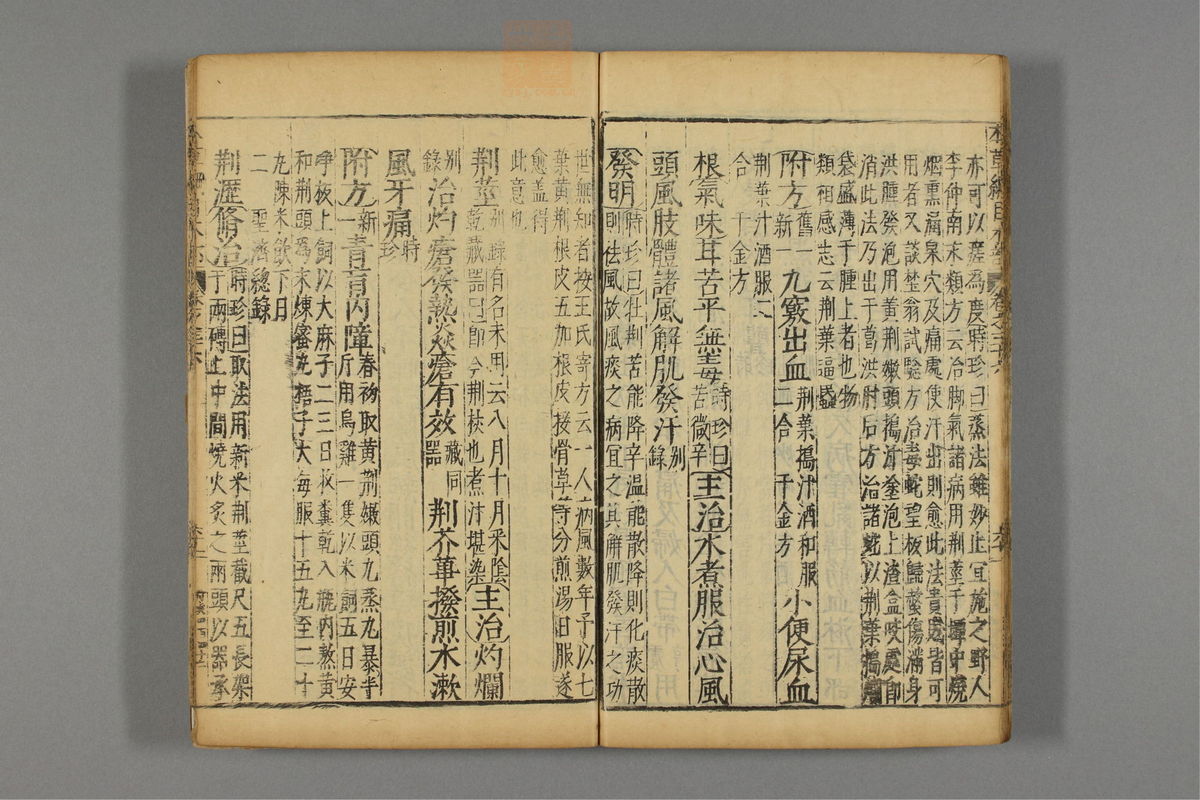 亦可以瘥為度時珍曰蒸法雖妙止宜施之野人
李仲南永類方云治脚氣諸病用荆莖于壜中燒
烟熏涌泉穴及痛處使汗出則愈此法貴賤皆可
用者又談埜翁試驗方治毒蛇望板歸螫傷滿身
洪腫發泡用黄荆嫩頭搗汁塗泡上渣盒咬處即
消此法乃出于葛洪肘后方治諸蛇以荆葉搗爛
袋盛薄于腫上者也物
類相感志云荆葉逼蚊
附方舊一新一九竅出血荆葉搗汁酒和服二合千金方小便尿血
荆葉汁酒服二
合千金方
根氣味甘苦平無毒時珍曰苦微辛主治水煮服治心風
頭風肢體諸風解肌發汗别錄
發明時珍曰牡荆苦能降辛温能散降則化痰散
則祛風故風痰之病宜之其解肌發汗之功
世無知者按王氏竒方云一人病風數年予以七
葉黄荆根皮五加根皮接骨草等分煎湯日服遂
愈蓋得
此意也
荆莖别錄有名未用云八月十月采陰乾藏器曰即今荆杖也煮汁堪染主治灼爛
别錄治灼瘡發熱焱瘡有效藏器同荆芥蓽撥煎水漱
風牙痛時珍
附方新一青盲内障春初取黄荆嫩頭九蒸九暴半斤用烏雞一隻以米飼五日安
净板上飼以大麻子二三日收糞乾入瓶内熬黄
和荆頭為末煉蜜丸梧子大每服十五丸至二十
丸陳米飲下日
二聖濟總錄
荆瀝脩治時珍曰取法用新采荆莖截尺五長架于兩磚上中間燒火炙之兩頭以器承